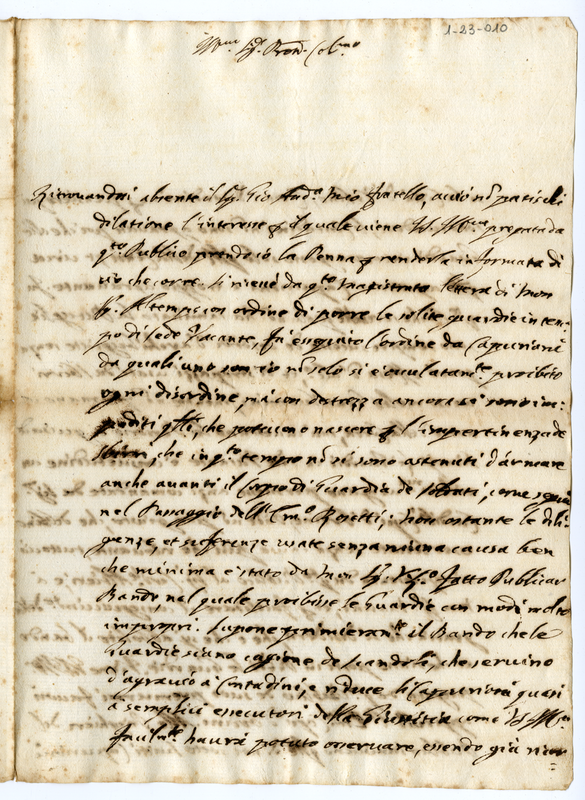 1-23-010
Ill.mo Sig. Pron. Col.mo
Ritrouandosi absente il Sig. Gio And.a mio fratello, acciò nō patischi
dilatione l'interesse p il quale uiene V.S. Ill.ma pregata da
q.to Publico prendo io la Penna p renderla informata di
ciò che corre. Si riceuè da q.to Magistrato lettera di Mon
Sig. Altemps con ordine di porre le solite guardie in tem,
po di sede Vacante, fù eseguito l'ordine da Caporioni
da quali uno solo si è oculatam.te proibito
ogni disordine, mà con destrezza ancora si sono im,
pediti q.lli, che poteuono nascere p l'impertinenza de
sbirri, che in q.to tempo nō si sono astenuti d'armare
anche auanti il Corpo di Guardia de soldati, come seguì
nel Passaggio dell' Em.o Rosetti; non ostante le dili,
genze, et sofferenze usate senza niuna causa ben
che minima è stato da Mon Sig. fatto Publicar
Bando, nel quale proibisse le Guardie con modi molto
improprii. Supone primieram.te il Bando che le
Guardie siano cagione de scandoli, che seruino
d'agrauio à Contadini, e riduce li Caporioni quasi
a semplici essecutori della Giustitia come V.S. Ill.ma
facilm.te haurà potuto osseruare, essendo già